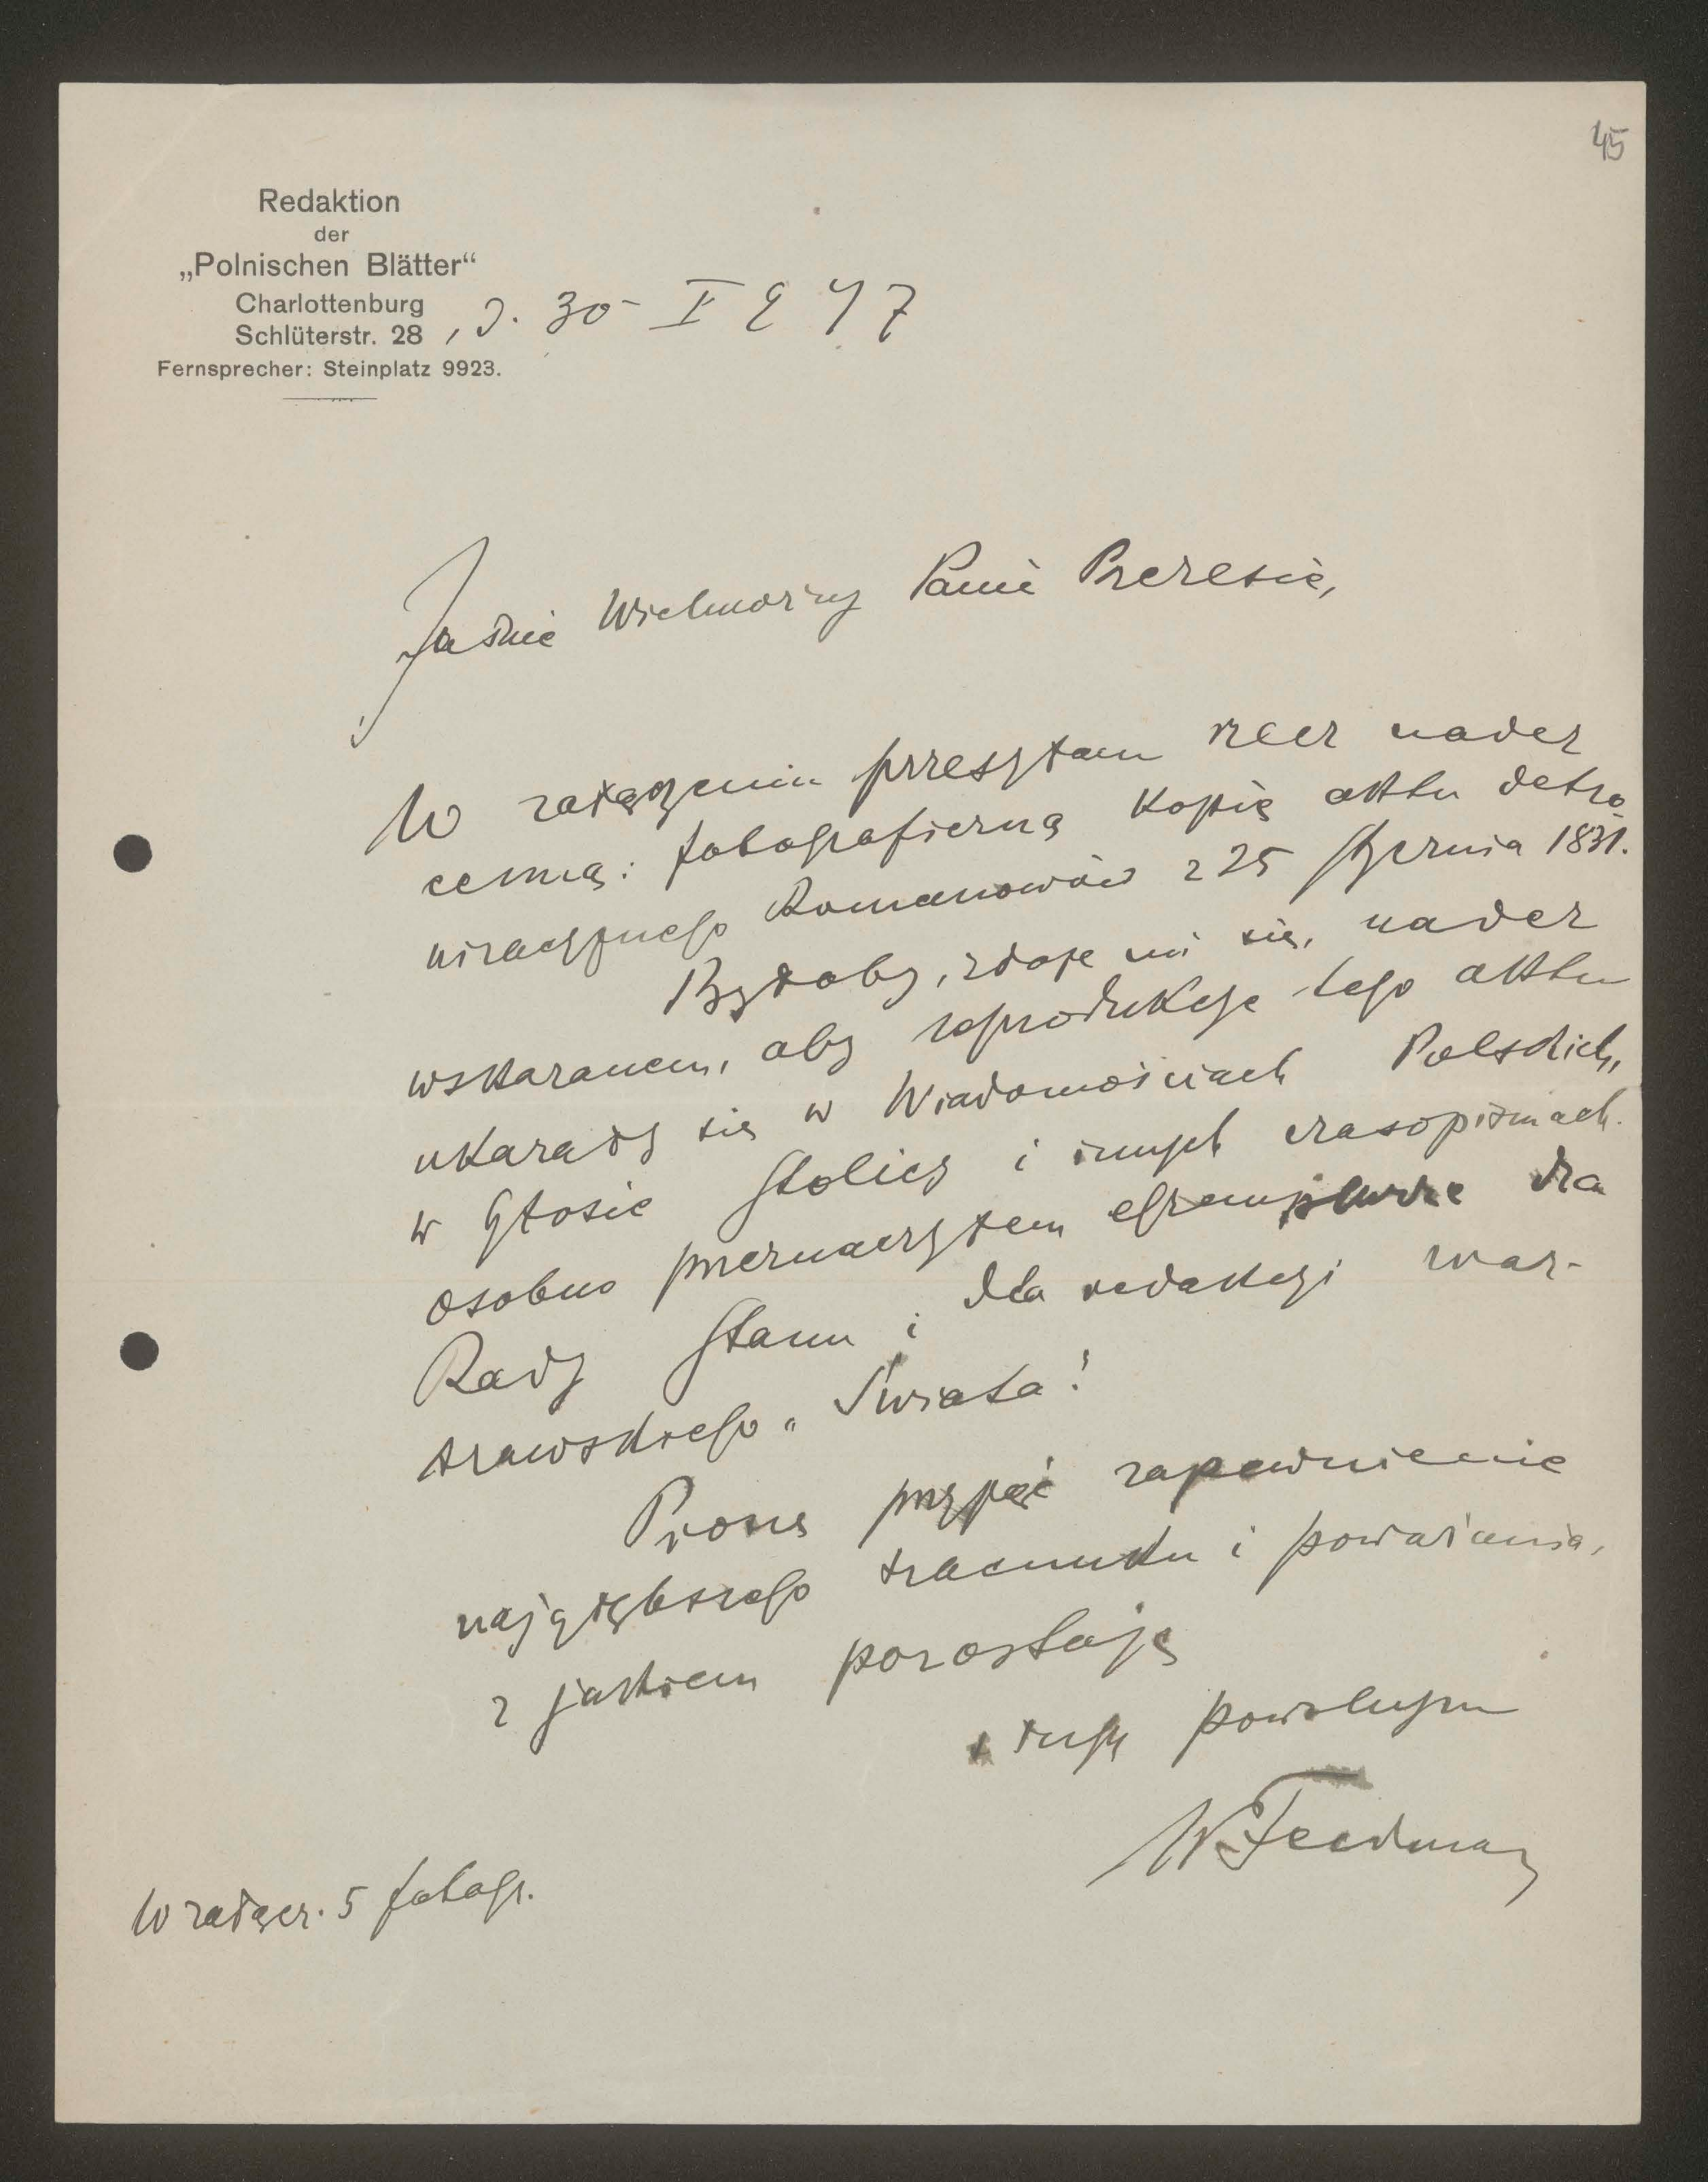 45
Redaktion
der
„Polnischen Blätter“
Charlottenburg
Schlüterstr. 28, d. 30 I 917
Fernsprecher: Steinplatz 9923.
Jaśnie Wielmożny Panie Prezesie,
W załączeniu przesyłam rzecz nader
cenną: fotograficzną kopię aktu detro
nizacyjnego Romanowów z 25 stycznia 1831.
Byłoby, zdaje mi się, nader
wskazanem, aby reprodukcje tego aktu
ukazały się w Wiadomościach Polskich,
w Głosie Stolicy i innych czasopismach.
Osobno przeznaczyłem egzemplarze dla
Rady Stanu i dla redakcyi war-
szawskiego „Świata“.
Proszę przyjąć zapewnienie
najgłębszego szacunku i poważania,
z jakiem pozostaję
sługą powolnym
WFeldman
W załącz. 5 fotogr.